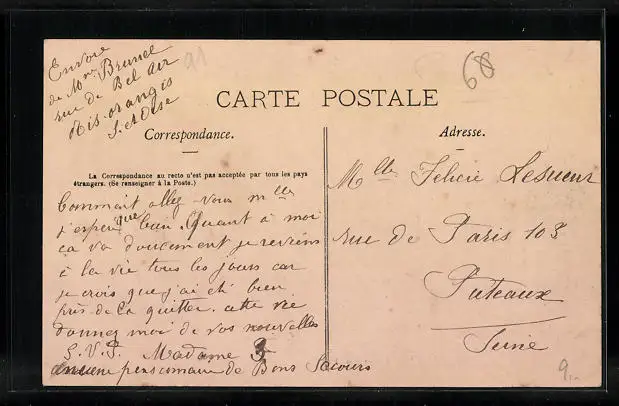 Envoie
de Mme Brunel
rue de Bel air
Ris-orangis
S. et Oise
91
68
CARTE POSTALE
Correspondance.
Adresse.
La Correspondance au recto n'est pas acceptée par tous les pays
étrangers. (Se renseigner à la Poste.)
Comment allez vous mlle
j'esper que bien. Quant à moi
ça va doucement je reviens
à la vie tous les jours car
je crois que j'ai été bien
près de la quitter. cette vie
donnez moi de vos nouvelles
S.V.P. Madame B
ancienne pensionnaire de Bons Secours
Mlle Félicie Lesueur
rue de Paris 103
Puteaux
Seine
9.-